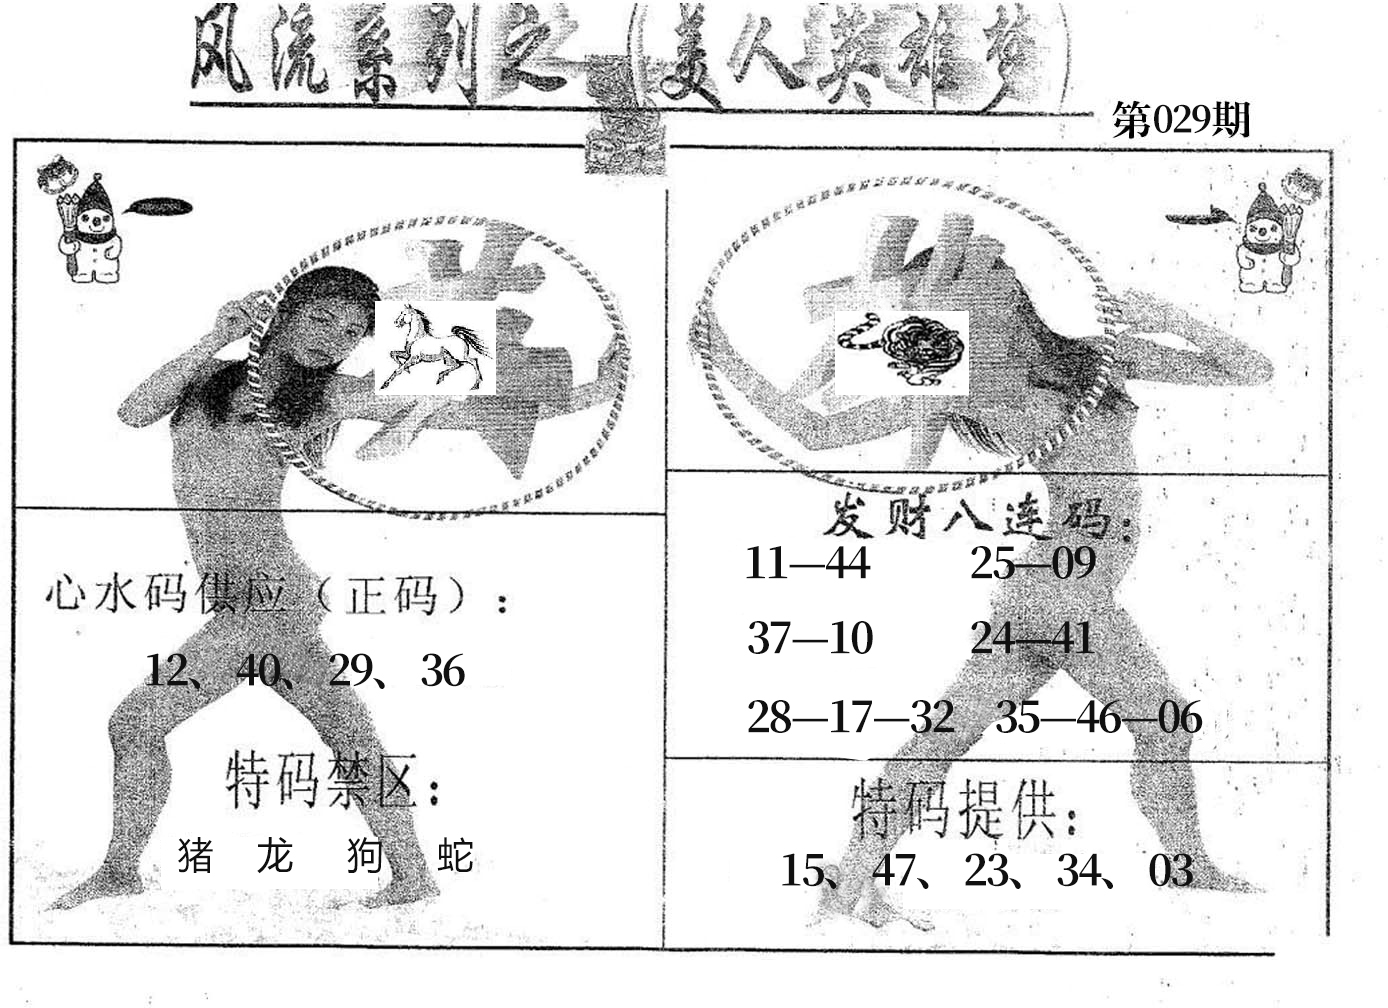 风流系列之一（美人英雄梦）
第029期
心水码供应（正码）:
12、40、29、36
特码禁区:
猪 龙 狗 蛇
发财八连码:
11—44 25—09
37—10 24—41
28—17—32 35—46—06
特码提供:
15、47、23、34、03